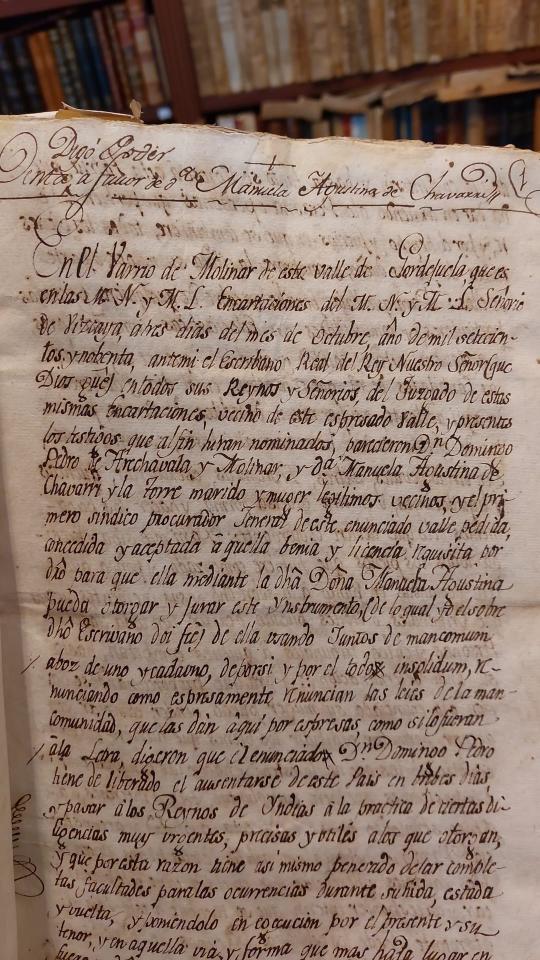 Digo Poder
Dente a favor de dª Manuela Agustina de Chavarri
En el Varrio de Molinar de este valle de Gordejuela, que es
en las M. N. y M. L. Encartaciones del M. N. y M. L. Señorio
de Vizcaya, a tres dias del mes de Octubre, año de mil setecien-
tos, y nobenta, antemi el Escribano Real del Rey Nuestro Señor (que
Dios gūe) en todos sus Reynos y Señorios, del Juzgado de estas
mismas encartaciones, vecino de este espresado Valle, y presentes
los testigos que al fin hiran nominados, parecieron Dn Domingo
Pedro de Arechavala, y Molinar, y dª Manuela Agustina de
Chavarri y la Torre marido y muger legitimos vecinos, y el pri-
mero sindico procurador General de este enunciado valle, pedida,
concedida y aceptada aquella benia y licencia requisita por
dr̃o para que ella mediante la dhã Doña Manuela Agustina
pueda otorgar y Jurar este Ynstrumento, (de lo qual yo el sobre
dhõ Escrivano doi feé) de ella usando Juntos de mancomum
aboz de uno y cada uno, de por si y por el todo insolidum, re-
nunciando como espresamente renuncian las leies de la man-
comunidad, que las dan aqui por espresas, como si lo fueran
ala Letra, digeron que el enunciado Dn Domingo Pedro
tiene deliberado el ausentarse de este Pais en brebes dias,
y pasar à los Reynos de Yndias à la practica de ciertas di-
ligencias muy urgentes, precisas y utiles a los que otorgan,
y que por esta razon tiene asi mismo penerado dejar comple-
tas facultades para las ocurrencias durante su hida, estada
y vuelta, y poniendolo en egecucion por el presente y su
tenor, y en aquella via, y forma que mas haia lugar en